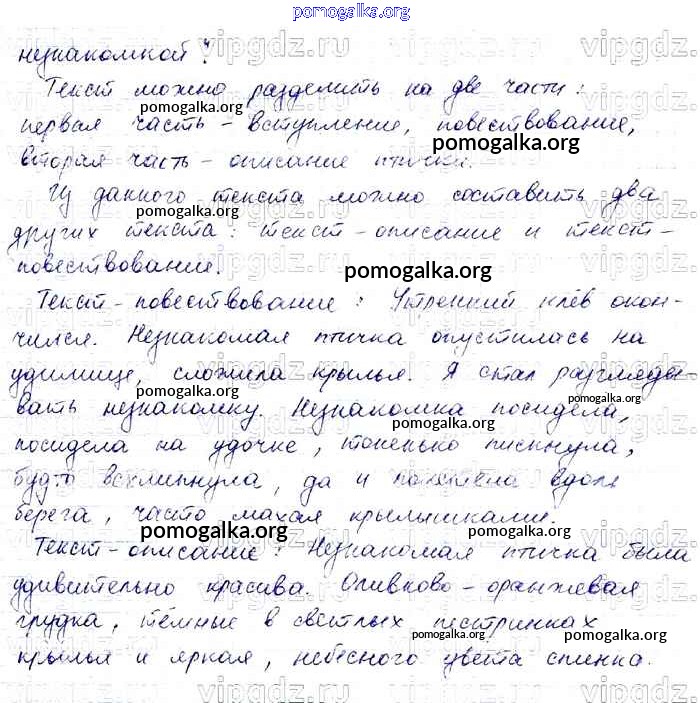 pomogalka.org
незнакомкой".
Текст можно разделить на две части:
первая часть - вступление, повествование,
вторая часть - описание птички.
Из данного текста можно составить два
других текста: текст-описание и текст-
повествование.
Текст-повествование: Утренний клёв окон-
чился. Незнакомая птичка опустилась на
удилище, сложила крылья. Я стал разгляды-
вать незнакомку. Незнакомка посидела,
посидела на удочке, тоненько пискнула,
будто всхлипнула, да и полетела вдоль
берега, часто махая крылышками.
Текст-описание: Незнакомая птичка была
удивительно красива. Оливково-оранжевая
грудка, тёмные в светлых пестринках
крылья и яркая, небесного цвета спинка.